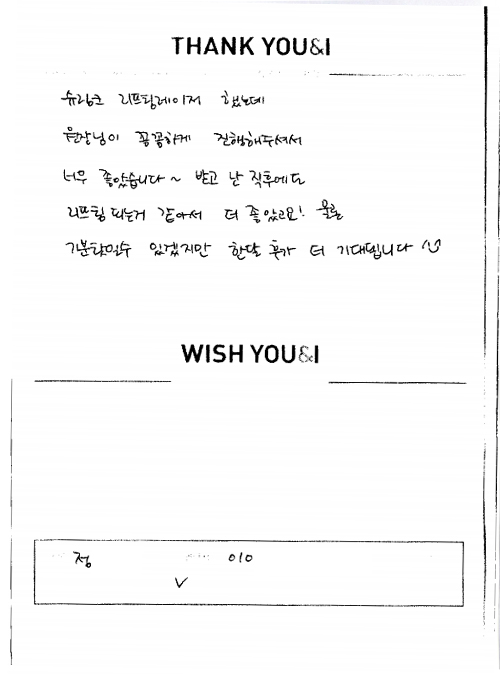 THANK YOU&I
슈링크 리프팅레이저 했는데
원장님이 꼼꼼하게 진행해주셔서
너무 좋았습니다~ 받고 난 직후에도
리프팅 되는거 같아서 더 좋았고요! 물론
기분탓일수 있겠지만 한달 후가 더 기대됩니다
WISH YOU&I
정 010